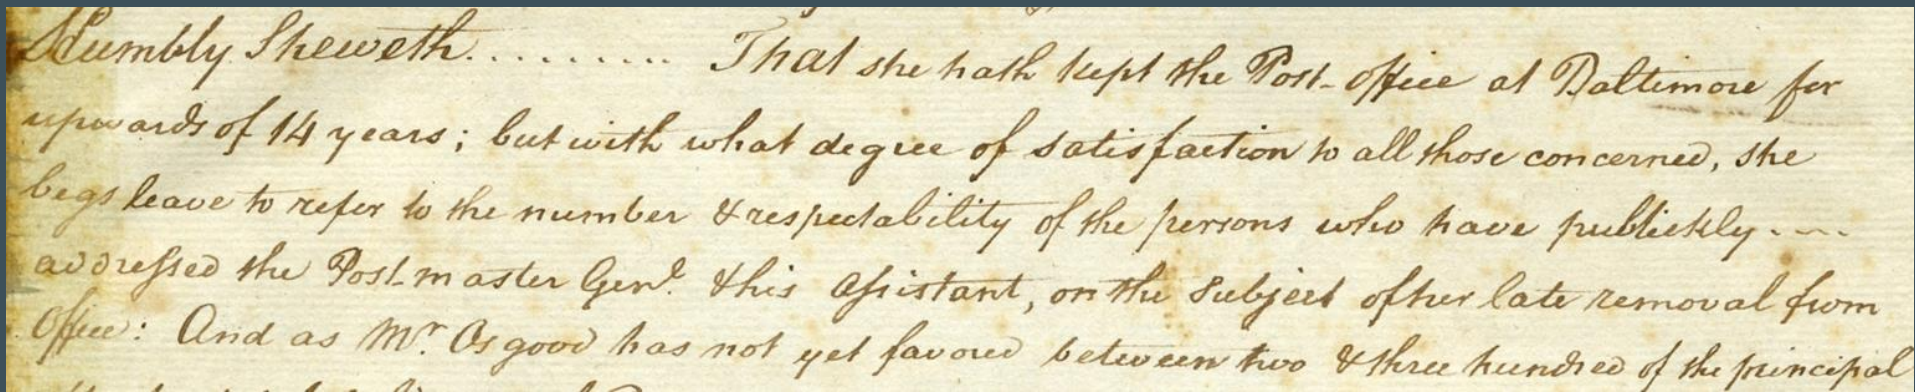 Humbly Sheweth.......... That she hath kept the Post-Office at Baltimore for
upwards of 14 years; but with what degree of satisfaction to all those concerned, she
begs leave to refer to the number & respectability of the persons who have publickly....
addressed the Post-master Genl. & his Assistant, on the Subject of her late removal from
Office: And as Mr. Osgood has not yet favored between two & three hundred of the principal